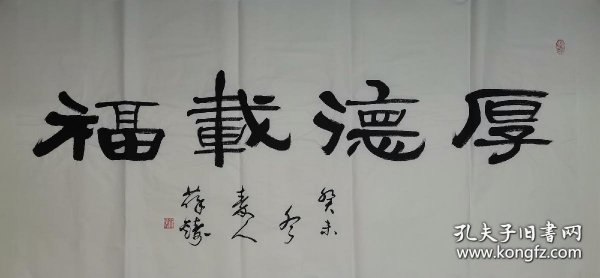 厚德載福
癸未
冬
麦人
孔夫子旧书网
www.kongfz.com